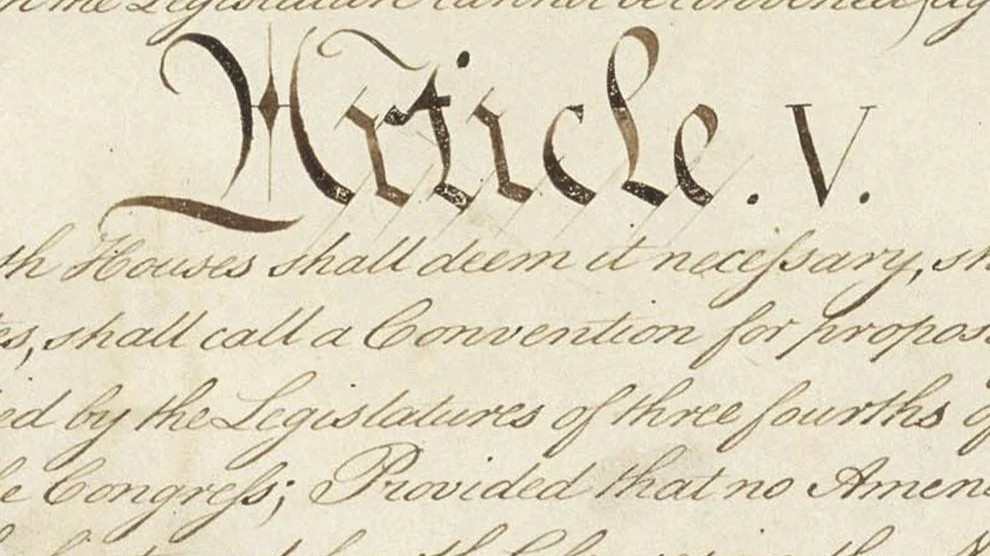 the Legislature cannot be convened)
Article. V.
Houses shall deem it neceſsary,
shall call a Convention for
by the Legislatures of three fourths
Congreſs; Provided that no